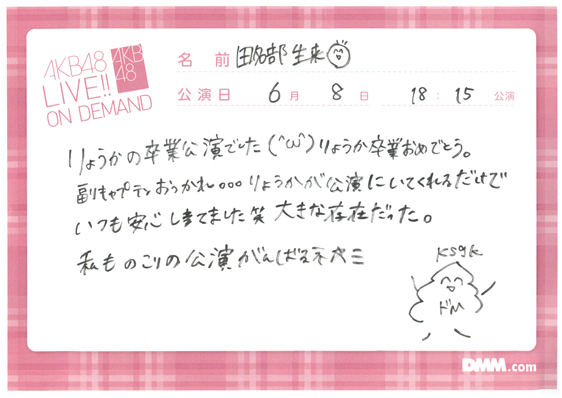 AKB48
LIVE!!
ON DEMAND
AKB
48
名 前 田名部生来
公演日 6月 8日 18:15 公演
りょうかの卒業公演でした(^ω^)りょうか卒業おめでとう。
副キャプテンおつかれ。。。りょうかが公演にいてくれるだけで
いつも安心しきてました笑 大きな存在だった。
私ものこりの公演がんばるネ
KSGK
ドM
DMM.com